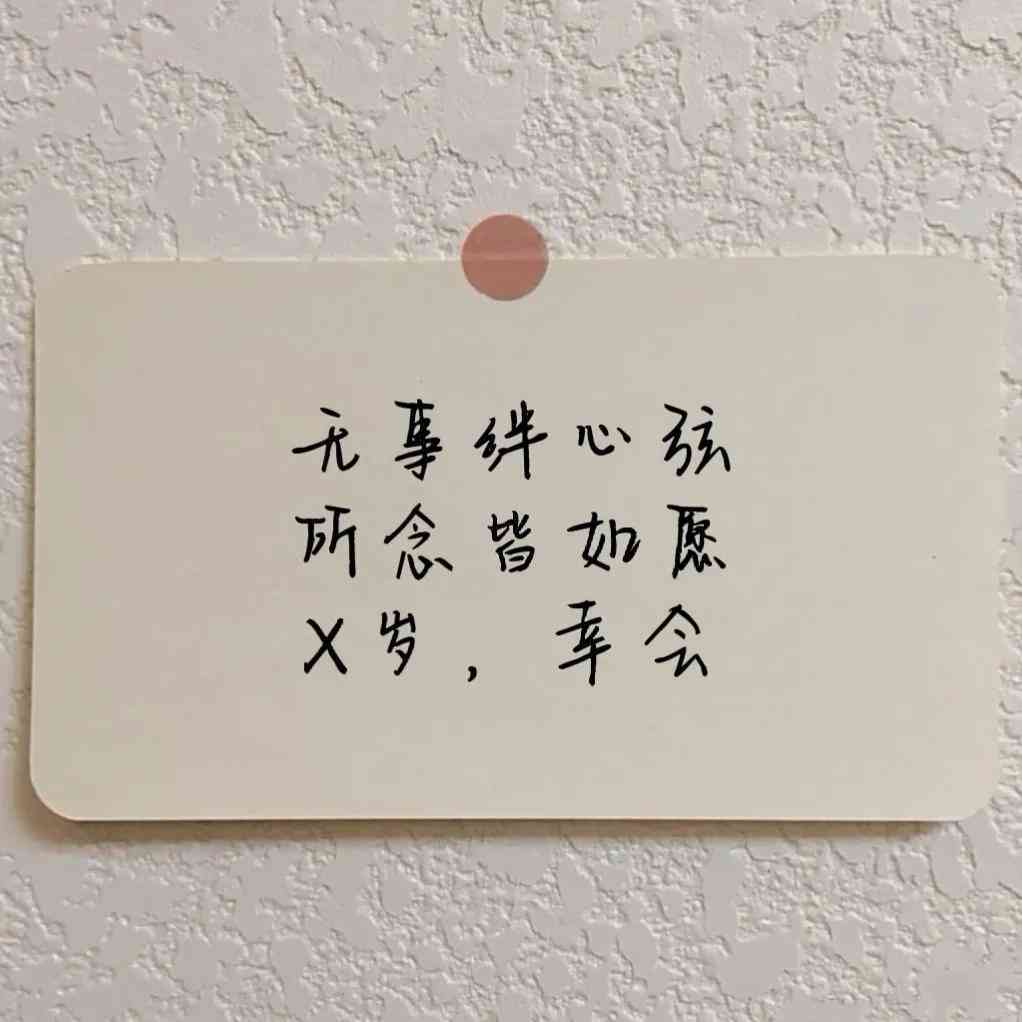 无事绊心弦
所念皆如愿
X岁，幸会